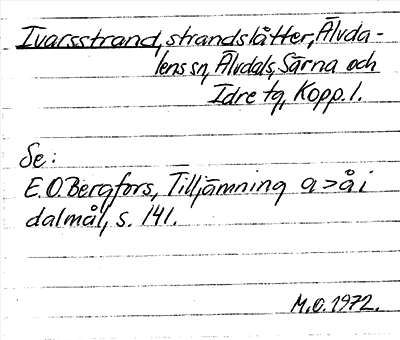 Ivarsstrand, strandslåtter, Älvda-
lens sn, Älvdals, Särna och
Idre tg, Kopp. l.
Se:
E.O. Bergfors, Tilljämning a>å i
dalmål, s. 141.
M.O. 1972.